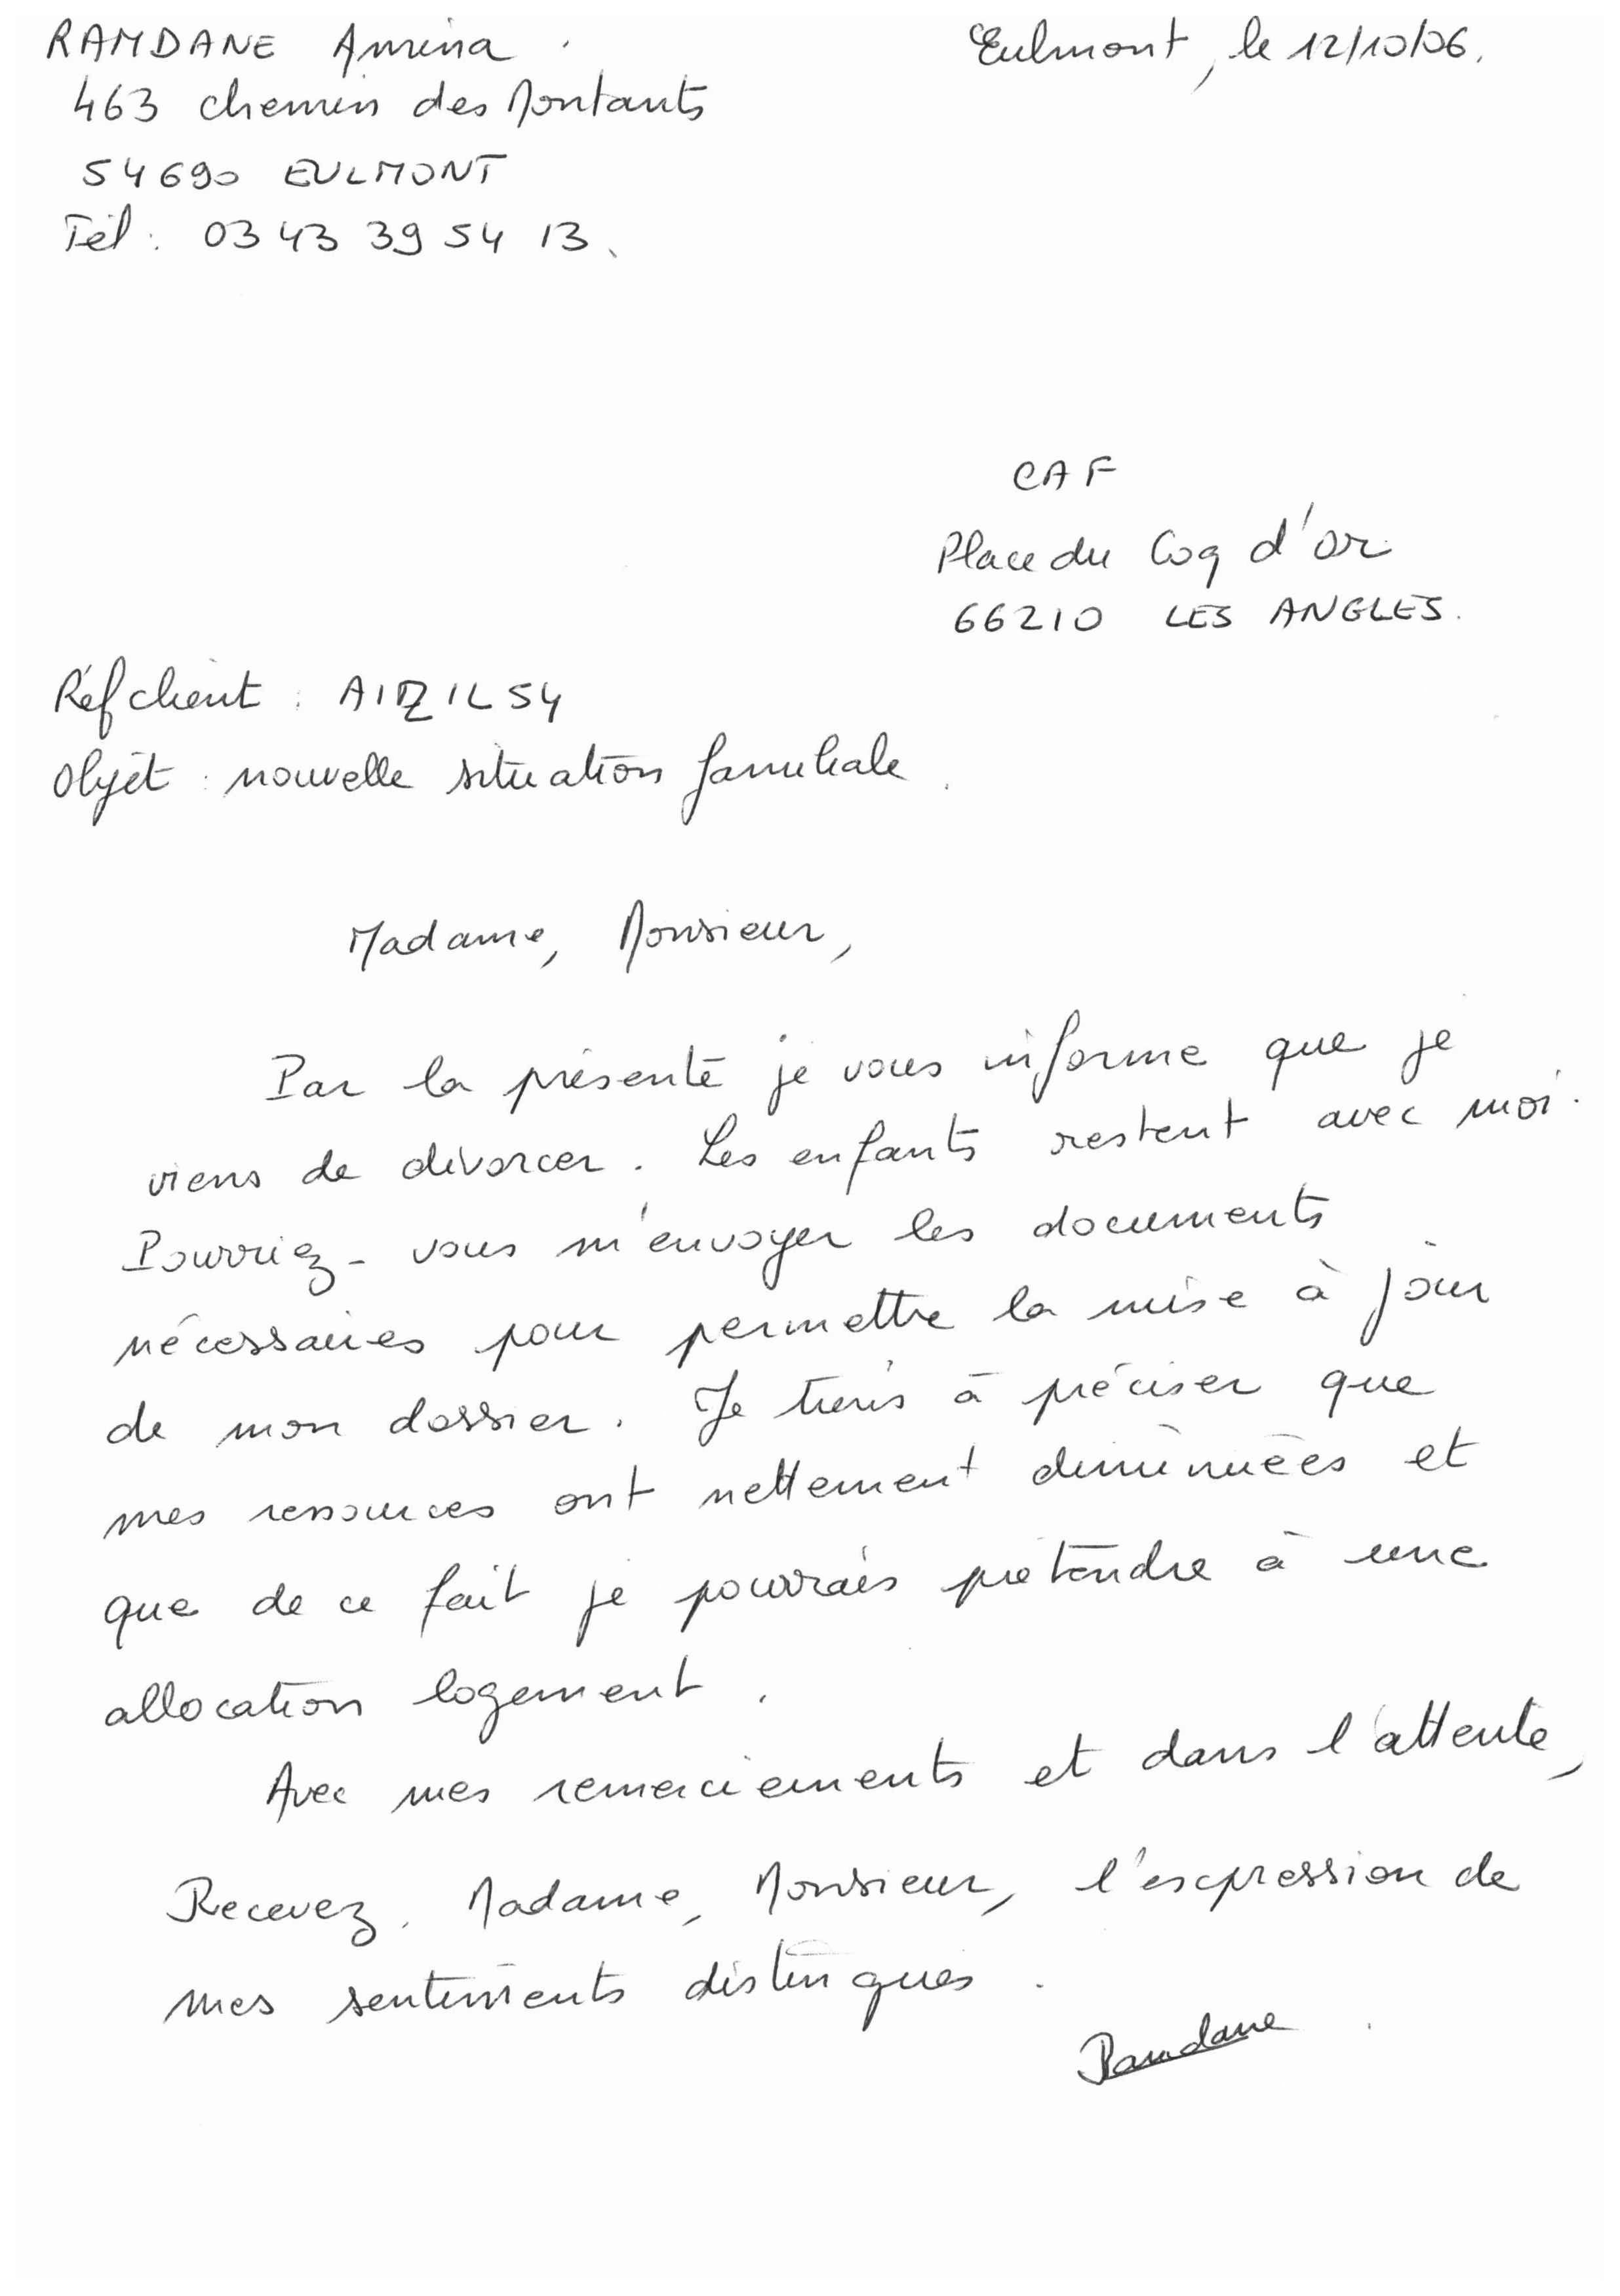 RAMDANE Amina.
Eulmont, le 12/10/06.
463 chemin des Montants
54690 EULMONT
Tél : 03 43 39 54 13.
CAF
Place du Coq d'or
66210 LES ANGLES.
Réf client :
Objet : nouvelle situation familiale.
Madame, Monsieur,
Par la présente je vous informe que je
viens de divorcer. Les enfants restent avec moi.
Pourriez-vous m'envoyer les documents
nécessaires pour permettre la mise à jour
de mon dossier. Je tiens à préciser que
mes ressources ont nettement diminuées et
que de ce fait je pourrais prétendre à une
allocation logement.
Avec mes remerciements et dans l'attente,
Recevez, Madame, Monsieur, l'expression de
mes sentiments distingués.
Ramdane